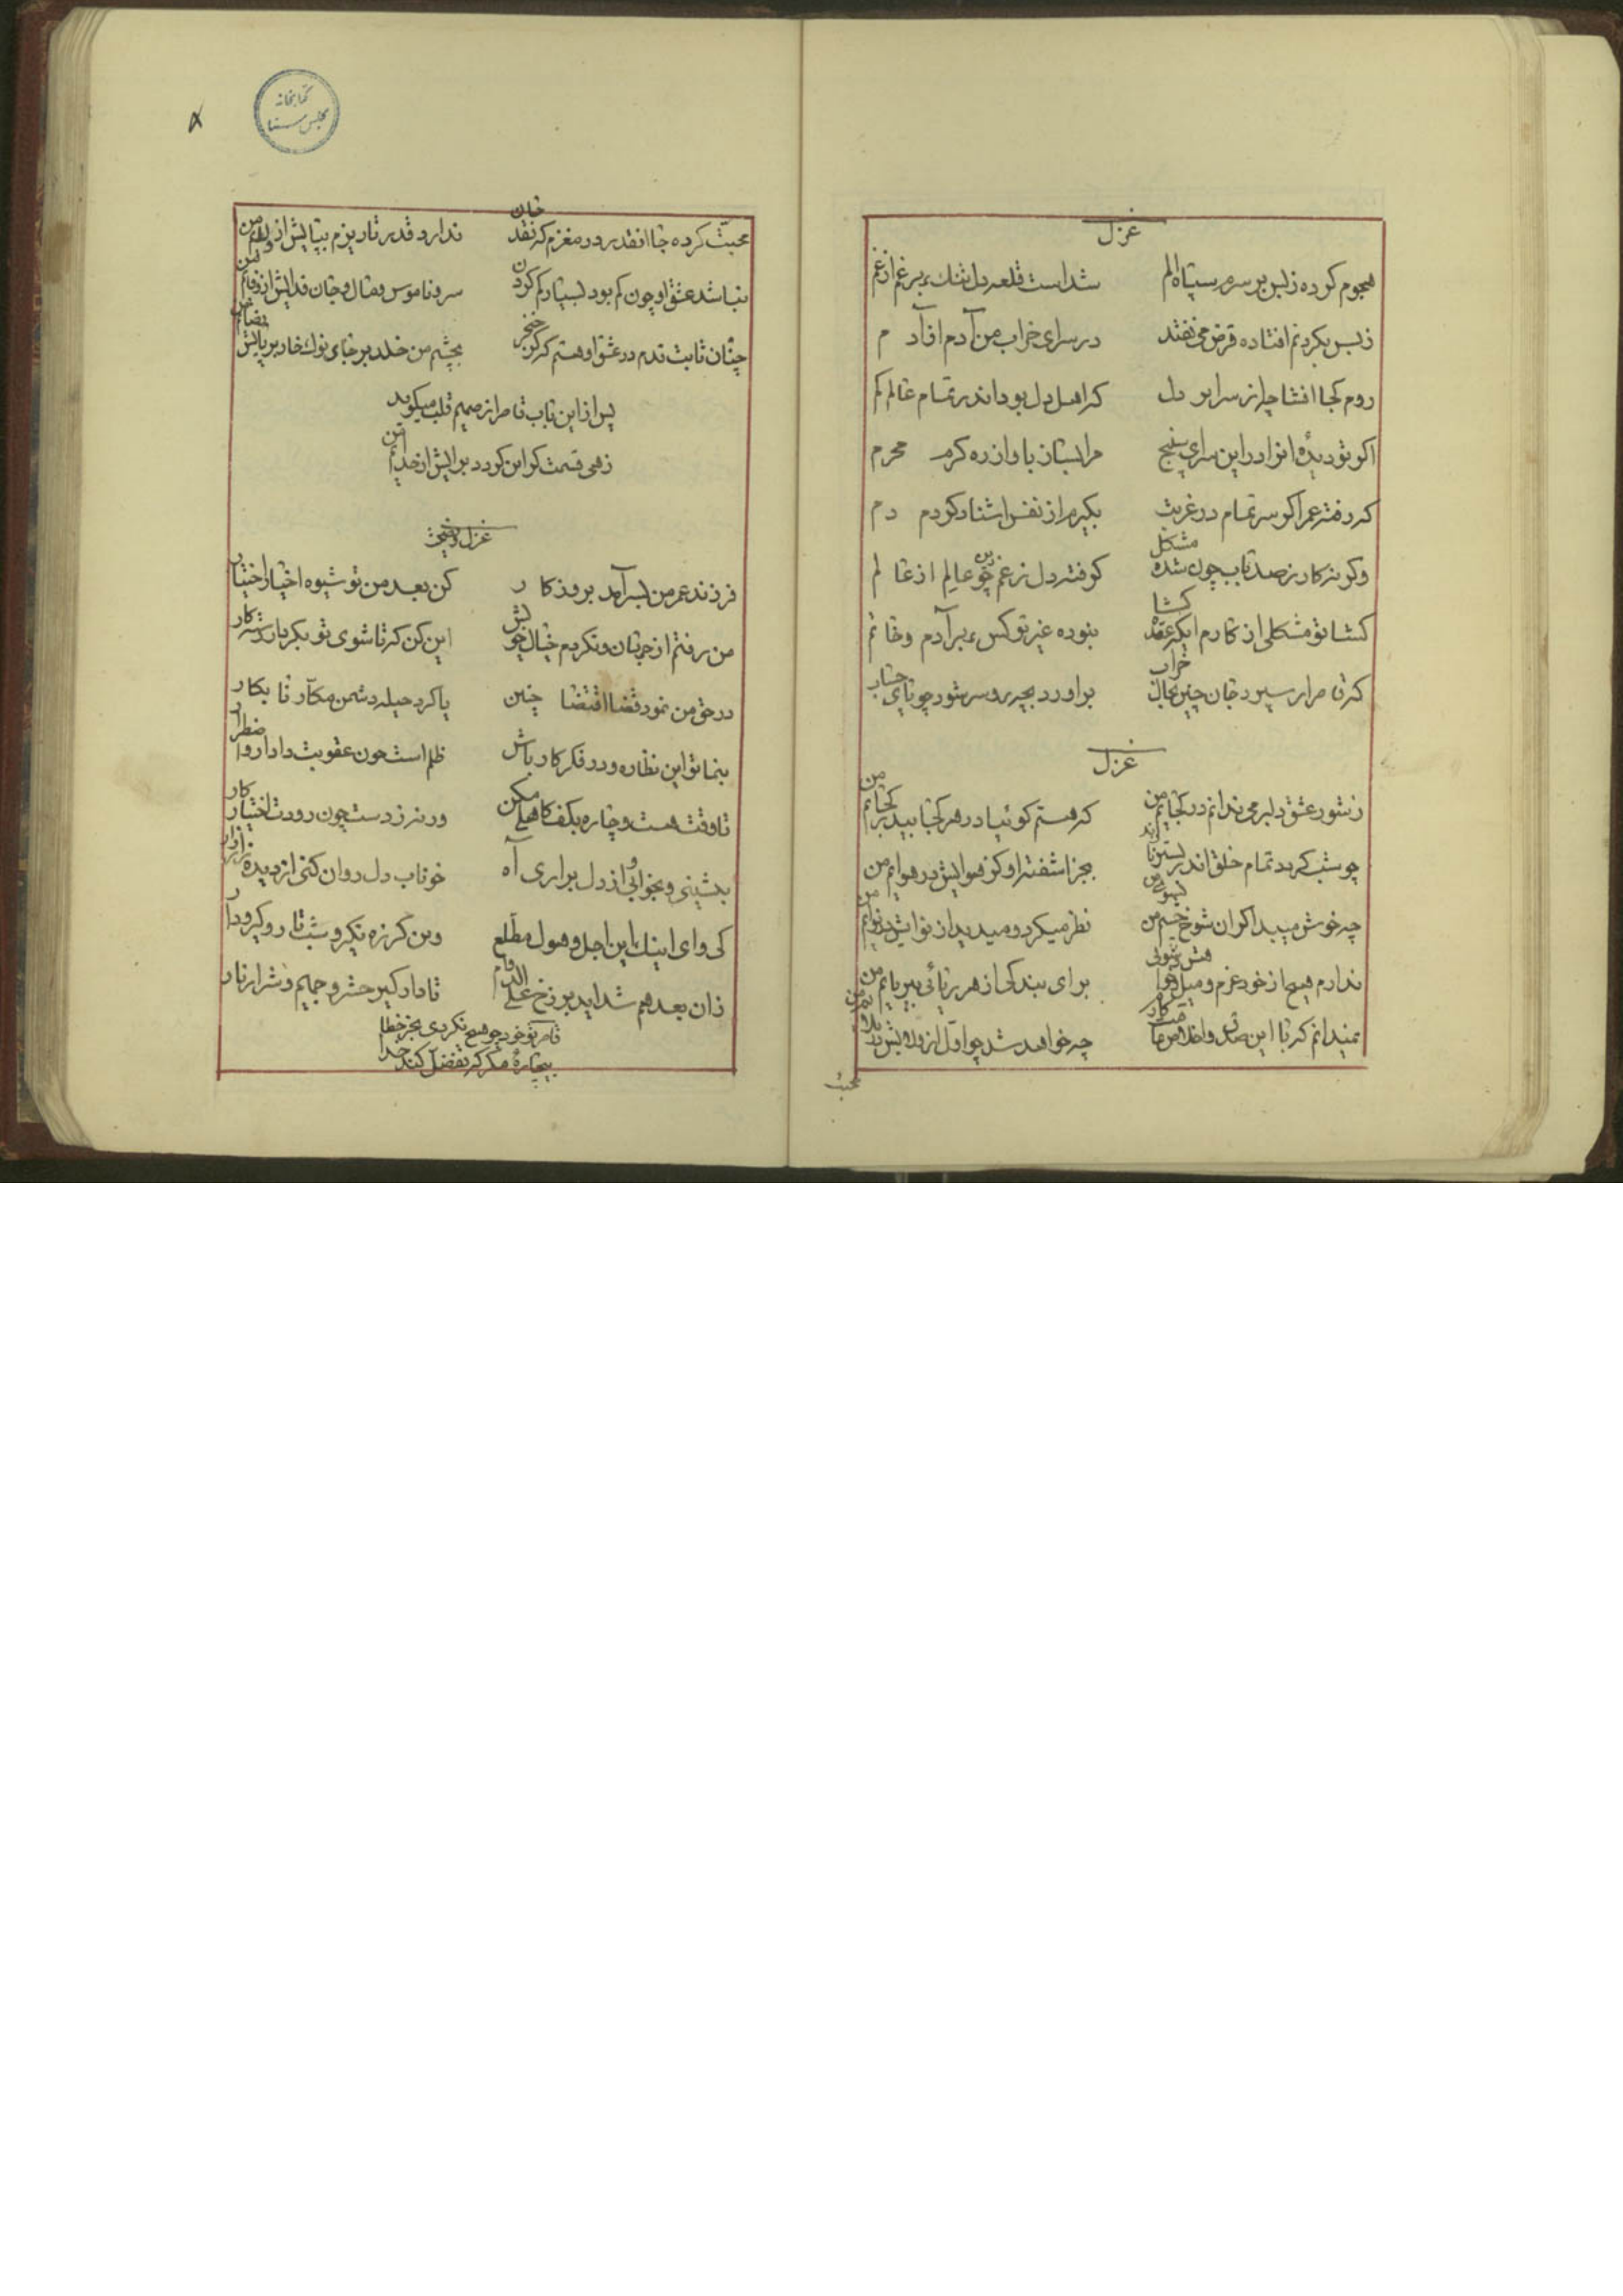 غزل
هجوم کرده ز بس بر سرم سپاه الم
شد است قلعه دل تنک بر غم از غم
ز بس بکردنم افتاده قرض می نفتد
در سرای خراب من آدم از آدم
روم کجا افشا چله از سرایر دل
که اهل دل بود اندر تمام عالم کم
اکر تو دیدهٔ انرا در این سرای سپنج
مرا بشان باو از ره کرم محرم
که رفته عمر اکر سر تمام در غربت
بکیرم از نفس اشنا دکر دم دم
وکرنه کار ز صد تاب چون شده مشکل
کرفته دل ز غم عالم از عالم
کشا تو مشکلی از کارم ایکه عقده کشا
نبوده غیر تو کس بر آدم و خاتم
که تا مرا سپرد جان چنین بحال خراب
براورد بچه رو سر شور چو پای حساب
غزل
ز شور عشق دلبر می ندانم در کجایم من
که هستم کوئیا در هر کجا بیدر کجایم من
چو شب کردد تمام خلق اند بستر ناز اند
بجز اشفته او کز هوایش در هوایم من
چه خوش میبد اکر ان شوخ چشم من بسوی من
نظر میکرد و میدید از نوایش در نوایم من
ندارم هیچ از خود عزم و میل و خواهش و شوقی
برای بندکی از هر ریائی بیریایم من
نمیدانم که با این صدق و اخلاص
چه خواهد شد چو اول از ولایش در بلایم من
محبت
محبت کرده جا انقدر در مغزم که نقد جان
ندارد قدر تا ریزم بپایش از ولایم من
نباشد عشق او چون کم بود بسپاریم کردن
سر و ناموس و مال و جان فدایش از وفایم من
چنان ثابت قدم در عشق او هستم که کر خنجر
بچشم من خلد بر جای نوک خار بر پایش
پس از این باب تامرا ز صمیم قلب میکوید
زهی قسمت کر این کردد برایش از خدا
غزل
فرزند عمر من بسر آمد بروز کار
کن بعد من تو شیوه اخیار اختیار
من رفتم از جهان و نکردم خیال خویش
این کن که تا شوی تو بکر یار رستکار
در حق من نمود قضا اقتضا چنین
یا کرد حیله دشمن مکار نابکار
بنما تو این نظاره و در فکر کار باش
ظلم است چون عقوبت دادار
تا وقت هست و چاره بکف کاهلی مکن
ورنه ز دست چون رودت اختیار کار
بنشینی و بخوانی و از دل براری آه
خوناب دل روان کنی از دیده زار زار
کی وای اینک این اجل و هول مطلع
وین کرزه نکیر و شب تار و کیر و دار
زان بعد هم شداید برزخ علی الدوام
تا دار کیر حشر و جحیم و شرار نار
تامر تو خود چو هیچ نکردی بجز خطا
بیچارهٔ مکر که تفضل کند خدا
کتابخانه
مجلس سنا